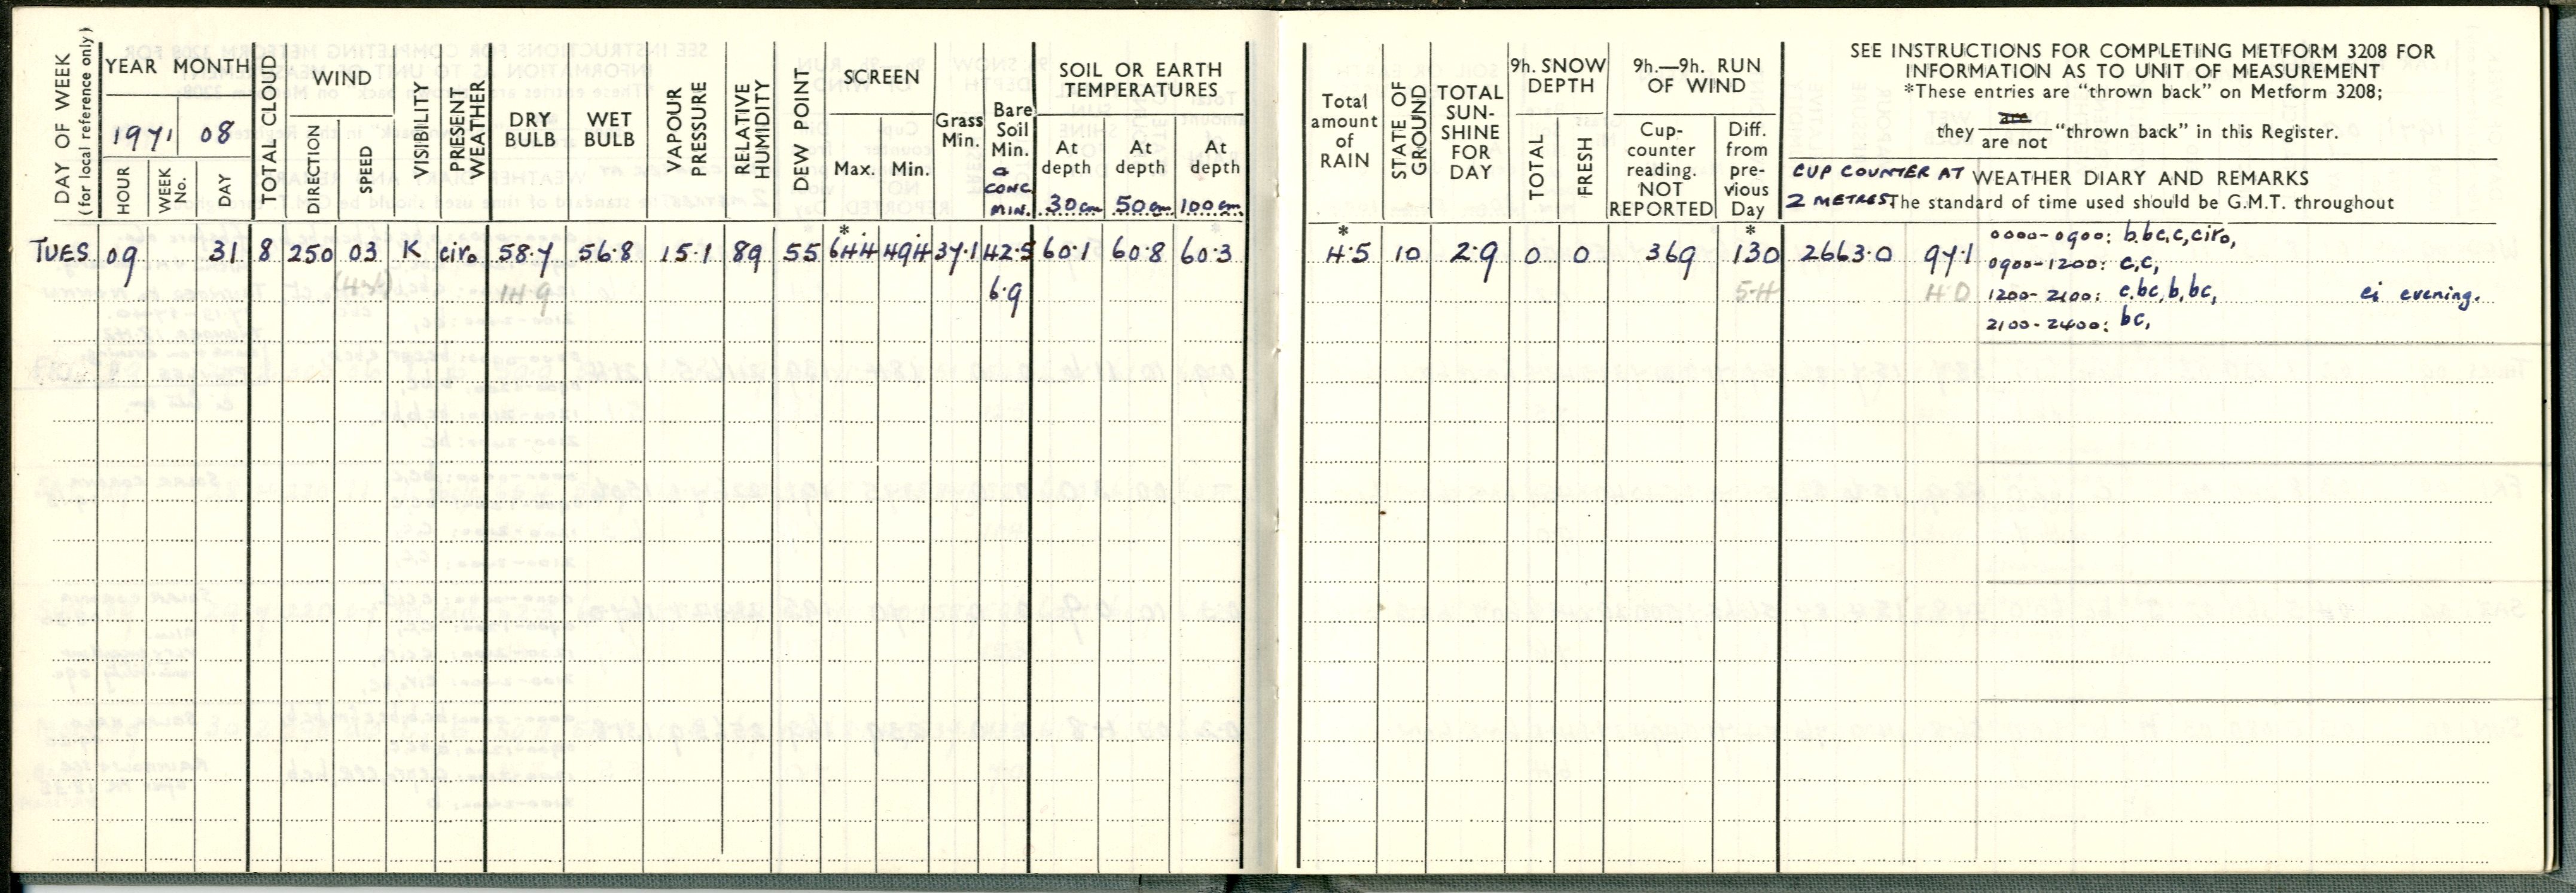 DAY OF WEEK
(for local reference only)
YEAR MONTH
1971 08
HOUR
WEEK No.
DAY
TOTAL CLOUD
WIND
DIRECTION
SPEED
VISIBILITY
PRESENT WEATHER
DRY BULB
WET BULB
VAPOUR PRESSURE
RELATIVE HUMIDITY
DEW POINT
SCREEN
Max. Min.
Grass Min.
Bare Soil Min.
a CONC. MIN.
SOIL OR EARTH TEMPERATURES
At depth 30 cm
At depth 50 cm
At depth 100 cm
Total amount of RAIN
STATE OF GROUND
TOTAL SUN-SHINE FOR DAY
9h. SNOW DEPTH
TOTAL
FRESH
9h.—9h. RUN OF WIND
Cup-counter reading. NOT REPORTED
Diff. from pre-vious Day
SEE INSTRUCTIONS FOR COMPLETING METFORM 3208 FOR
INFORMATION AS TO UNIT OF MEASUREMENT
*These entries are "thrown back" on Metform 3208;
they are / are not "thrown back" in this Register.
CUP COUNTER AT 2 METRES
WEATHER DIARY AND REMARKS
The standard of time used should be G.M.T. throughout
TUES 09 31 8 250 03 K ciro 58.7 56.8 15.1 89 55 *644 494 37.1 42.5 60.1 60.8 60.3 *4.5 10 2.9 0 0 369 *130 2663.0 97.1
14.9 6.9 5.4 4.0
0000-0900: b.bc,c,ciro,
0900-1200: c,c,
1200-2100: c.bc,b,bc, ci evening.
2100-2400: bc,